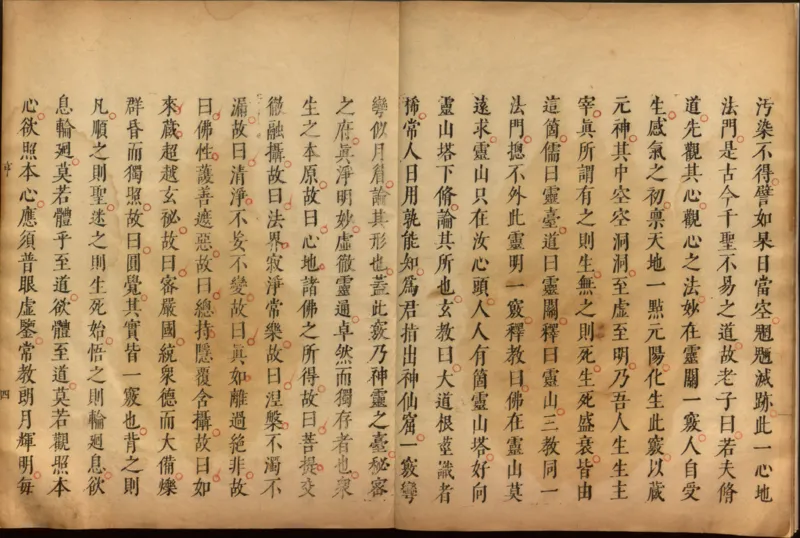 汚染不得譬如杲日當空魍魎滅跡此一心地
法門是古今千聖不易之道故老子曰若夫脩
道先觀其心觀心之法妙在靈關一竅人自受
生感氣之初稟天地一點元陽化生此竅以藏
元神其中空空洞洞至虛至明乃吾人生生主
宰眞所謂有之則生無之則死生死盛衰皆由
這箇儒曰靈臺道曰靈關釋曰靈山三教同一
法門摠不外此靈明一竅釋教曰佛在靈山莫
遠求靈山只在汝心頭人人有箇靈山塔好向
靈山塔下脩論其所也玄教曰大道根莖識者
稀常人日用孰能知爲君指出神仙窟一竅彎
彎似月眉論其形也蓋此竅乃神靈之臺秘密
之府眞淨明妙虛徹靈通卓然而獨存者也衆
生之本原故曰心地諸佛之所得故曰菩提交
徹融攝故曰法界寂淨常樂故曰涅槃不濁不
漏故曰清淨不妄不變故曰眞如離過絶非故
曰佛性護善遮惡故曰總持隱覆含攝故曰如
來藏超越玄秘故曰密嚴國統衆德而大備爍
群昏而獨照故曰圓覺其實皆一竅也背之則
凡順之則聖迷之則生死始悟之則輪廻息欲
息輪廻莫若體乎至道欲體至道莫若觀照本
心欲照本心應須普眼虛鑒常教朗月輝明每
四